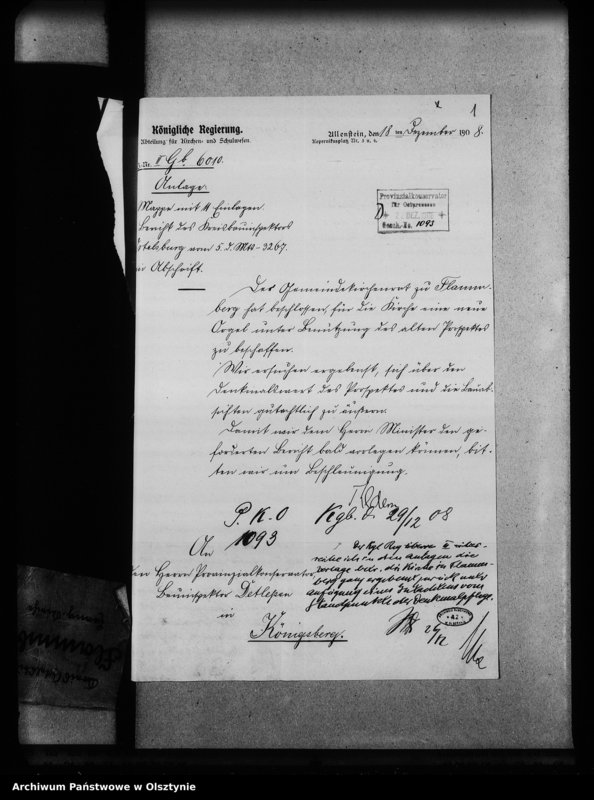 1
Königliche Regierung.
Abteilung für Kirchen- und Schulwesen.
Allenstein, den 18 ten Dezember 1908.
Kopernikusplatz Nr.
J.-Nr. II Gb. 6010.
Anlage.
Mappe mit 4 Einlagen
Bericht des Kreisbauinspektors
Ortelsburg vom 5. d. Mts - 3267.
in Abschrift.
Provinzialkonservator
für Ostpreussen
DEZ.
Gesch.-No. 1093
Der Gemeindekirchenrat zu Flamm-
berg hat beschlossen, für die Kirche eine neue
Orgel unter Benutzung des alten Prospektes
zu beschaffen.
Wir ersuchen ergebenst, sich über den
Denkmalswert des Prospektes und die Bauab-
sichten gutachtlich zu äußern.
Damit wir dem Herrn Minister den ge-
forderten Bericht bald vorlegen können, bit-
ten wir um Beschleunigung.
P. K. O
1093
Kgb. d. 29/12 08
An
den Herrn Provinzialkonservator,
Bauinspektor Dethlefsen
in
Königsberg.
Der Kgl Reg. über-
reiche ich in den Anlagen die
Vorlage betr. die Kirche in Flamm-
berg ganz ergebenst zurück unter
Anfügung eines Gutachtens vom
Standpunkte der Denkmalpflege.
29/12
Archiwum Państwowe w Olsztynie